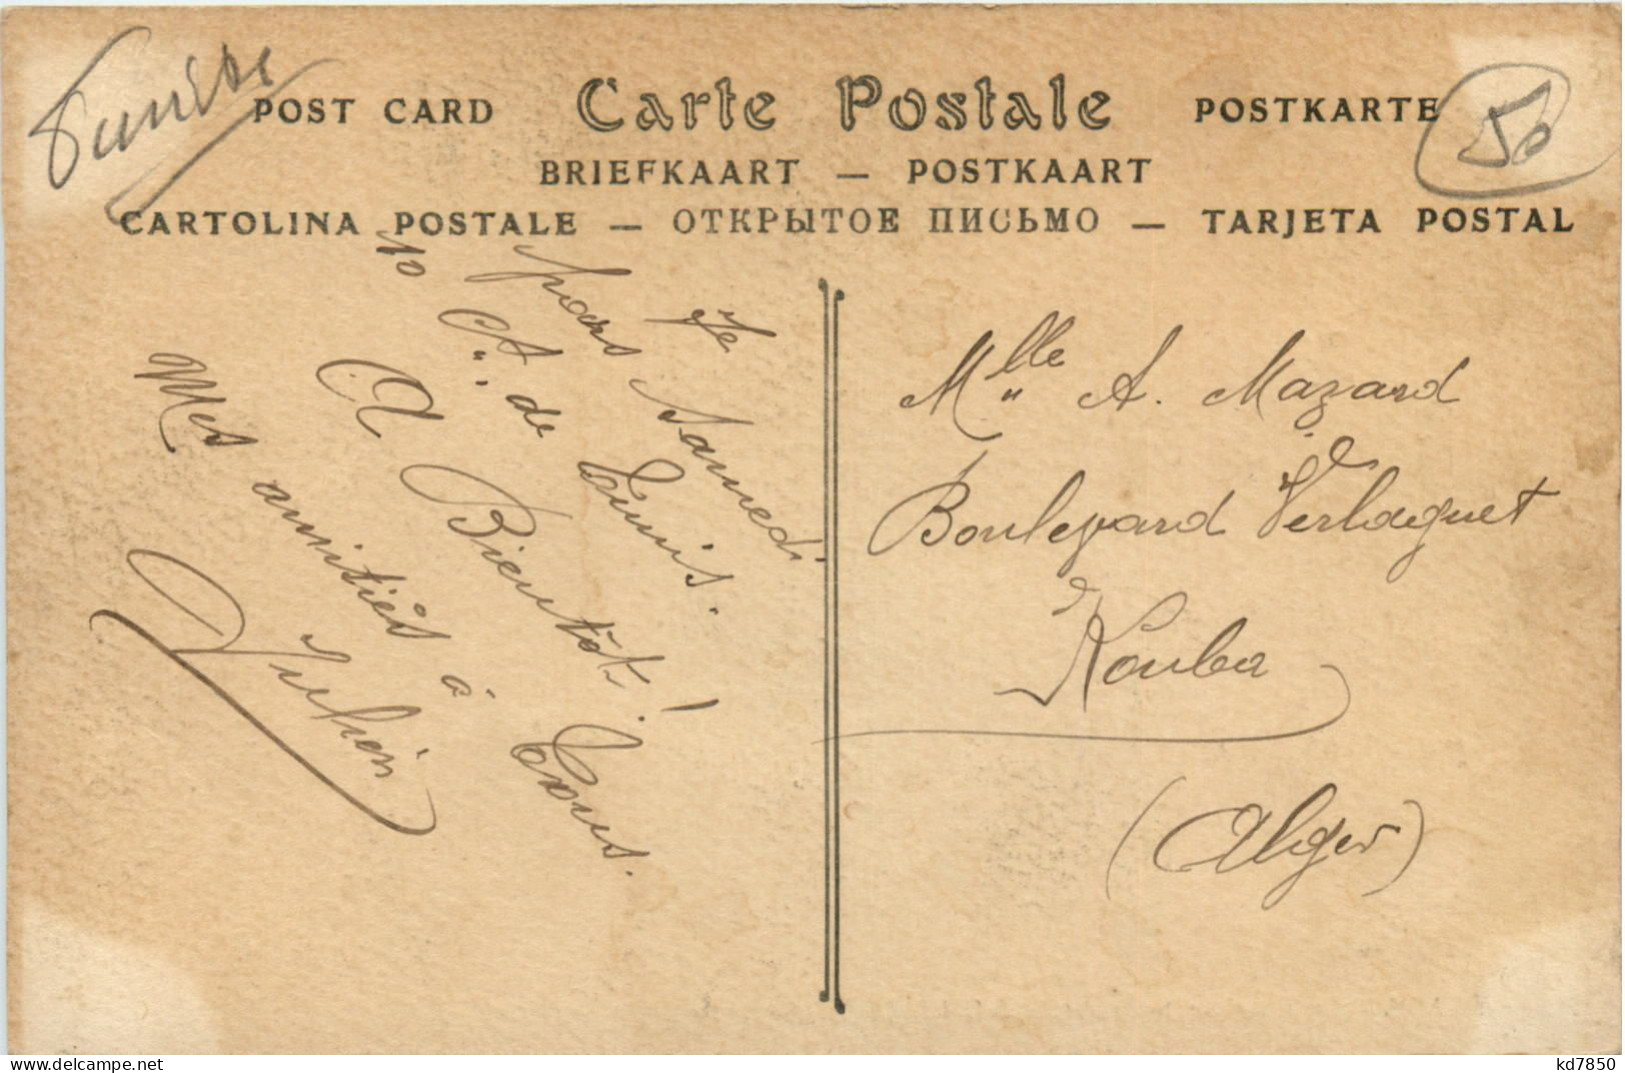 Tunisie
POST CARD Carte Postale POSTKARTE
50
BRIEFKAART — POSTKAART
CARTOLINA POSTALE — ОТКРЫТОЕ ПИСЬМО — TARJETA POSTAL
Je
pars Samedi
10 Ct. de Tunis.
A Bientôt!
Mes amitiés à Tous.
Mlle A. Mazard
Boulevard Verlaguet
Kouba
(Alger)
kd7850